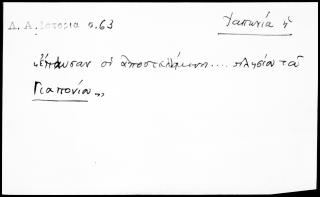 Δ. Α. Ιστορία σ.63
Ἰαπωνία ἡ
"ἔπαυσαν οἱ ἀποσταλμένοι.... πλησίον τοῦ
Γιαπονίου"